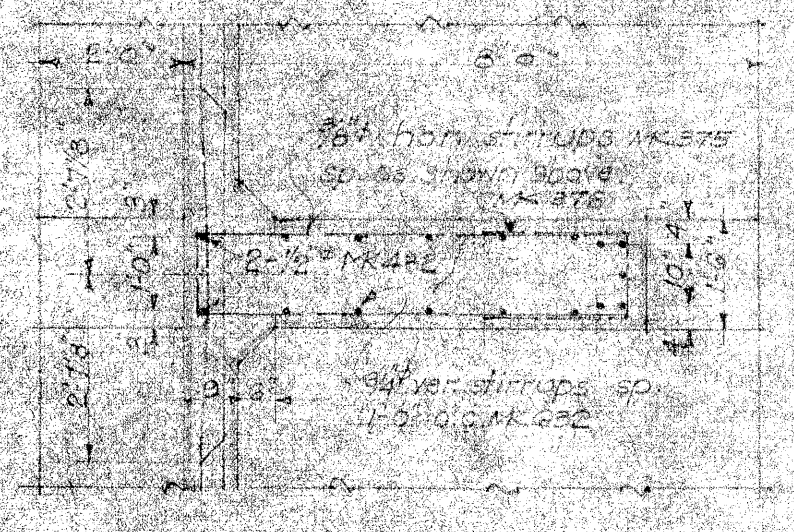 2'-0"
8'-0"
3/8"ϕ hor. stirrups MK375
sp. as shown above
MK 376
3"
2'-1 1/8"
1'-0"
2-1/2"ϕ MK482
4"
10"
1'-6"
4"
3"
2'-1 1/8"
9"
6"
3/4"ϕ ver. stirrups sp.
1'-0" o.c. MK 632